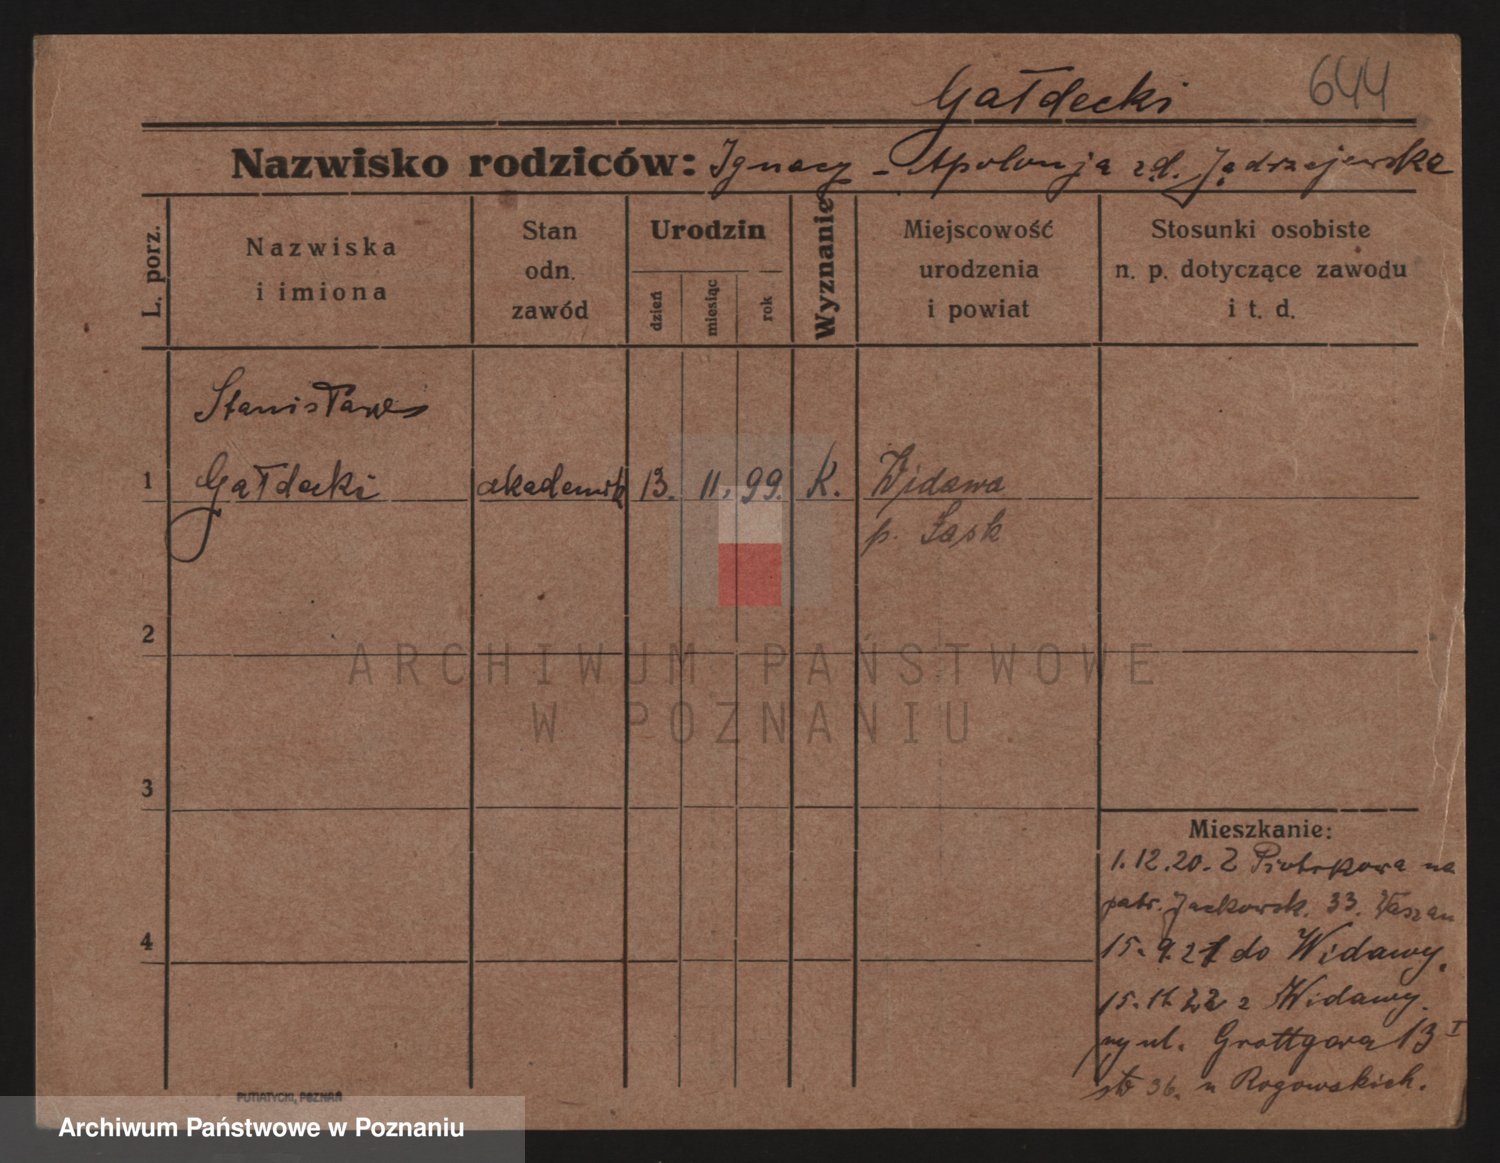 Gałdecki 644
Nazwisko rodziców: Ignacy - Apolonja zd. Jędrzejewska
L. porz.
Nazwiska
i imiona
Stan
odn.
zawód
Urodzin
dzień
miesiąc
rok
Wyznanie
Miejscowość
urodzenia
i powiat
Stosunki osobiste
n. p. dotyczące zawodu
i t. d.
Stanisław
1 Gałdecki akademik 13. 11. 99. K. Widawa
p. Łask
2
ARCHIWUM PAŃSTWOWE
W POZNANIU.
3
Mieszkanie:
1.12.20. Z Piotrkowa na
patr. Jackowsk. 33.
4
15.9.21 do Widawy.
15.11.22 z Widawy.
ul. Grottgera 13 I
36. u Rogowskich.
PUTIATYCKI, POZNAŃ
Archiwum Państwowe w Poznaniu